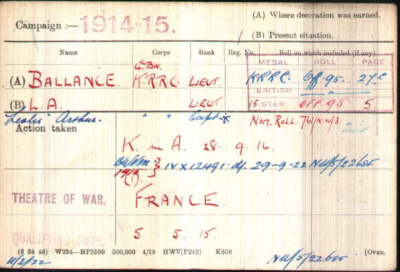 Campaign :— 1914-15.
(A) Where decoration was earned.
(B) Present situation.
Name Corps Rank Reg. No. Roll on which included (if any).
MEDAL ROLL PAGE
4th Bn.
(A) BALLANCE. K.R.R.C. LIEUT. K.R.R.C. Off. 95. 27c
BRITISH " "
(B) L.A. LIEUT. 15 STAR Off. 95. 5.
Leslie Arthur. " " Capt
Action taken
K. in A. 28.9.16.
IV X 12491 d/ 29-9-22 NW/5/22685
THEATRE OF WAR. FRANCE
QUALIFYING DATE. 5. 5. 15.
(6 34 46) W234—HP5590 500,000 4/19 HWV(P240) K608
NW/5/22685 [Over.